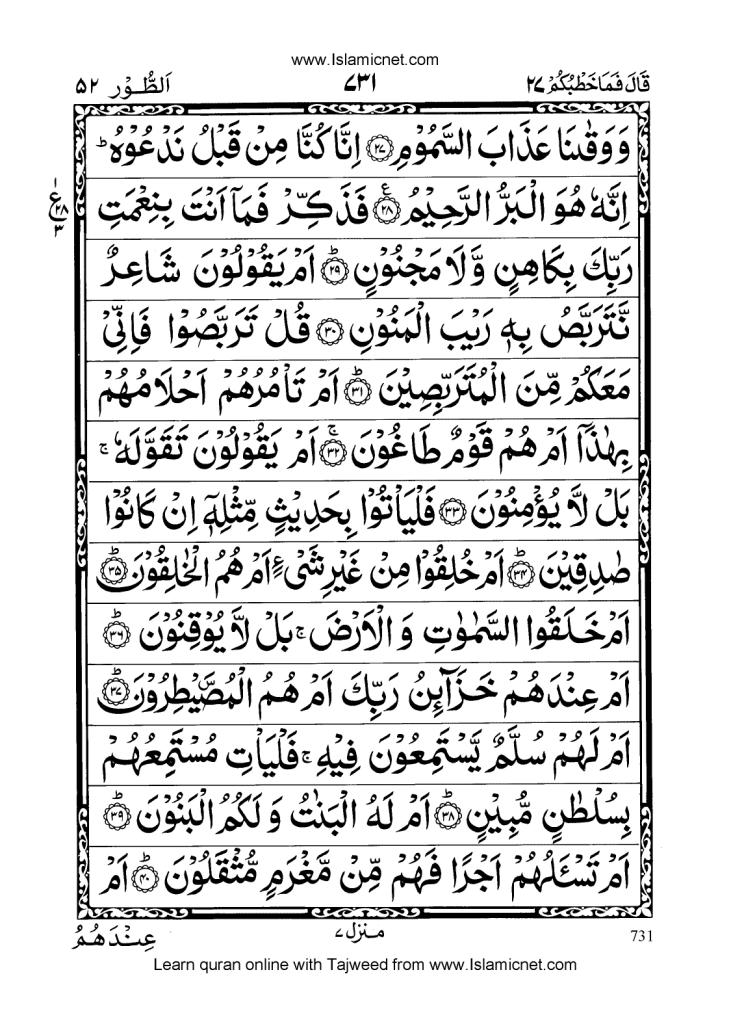 www.Islamicnet.com
قَالَ فَمَا خَطْبُكُمْ ٢٧
٧٣١
اَلطُّوْر ٥٢
وَوَقٰىنَا عَذَابَ السَّمُوْمِ ﴿٢٧﴾ اِنَّا كُنَّا مِنْ قَبْلُ نَدْعُوْهُ ؕ
اِنَّهٗ هُوَ الْبَرُّ الرَّحِيْمُ ﴿٢٨﴾ ع فَذَكِّرْ فَمَاۤ اَنْتَ بِنِعْمَتِ
١
ع ٢٨
٣
رَبِّكَ بِكَاهِنٍ وَّلَا مَجْنُوْنٍ ﴿٢٩﴾ؕ اَمْ يَقُوْلُوْنَ شَاعِرٌ
نَّتَرَبَّصُ بِهٖ رَيْبَ الْمَنُوْنِ ﴿٣٠﴾ قُلْ تَرَبَّصُوْا فَاِنِّيْ
مَعَكُمْ مِّنَ الْمُتَرَبِّصِيْنَ ﴿٣١﴾ؕ اَمْ تَاْمُرُهُمْ اَحْلَامُهُمْ
بِهٰذَاۤ اَمْ هُمْ قَوْمٌ طَاغُوْنَ ﴿٣٢﴾ۚ اَمْ يَقُوْلُوْنَ تَقَوَّلَهٗ ۚ
بَلْ لَّا يُؤْمِنُوْنَ ﴿٣٣﴾ۚ فَلْيَاْتُوْا بِحَدِيْثٍ مِّثْلِهٖۤ اِنْ كَانُوْا
صٰدِقِيْنَ ﴿٣٤﴾ؕ اَمْ خُلِقُوْا مِنْ غَيْرِ شَىْءٍ اَمْ هُمُ الْخٰلِقُوْنَ ﴿٣٥﴾ؕ
اَمْ خَلَقُوا السَّمٰوٰتِ وَ الْاَرْضَ ۚ بَلْ لَّا يُوْقِنُوْنَ ﴿٣٦﴾ؕ
اَمْ عِنْدَهُمْ خَزَآئِنُ رَبِّكَ اَمْ هُمُ الْمُصَۜيْطِرُوْنَ ﴿٣٧﴾ؕ
اَمْ لَهُمْ سُلَّمٌ يَّسْتَمِعُوْنَ فِيْهِ ۚ فَلْيَاْتِ مُسْتَمِعُهُمْ
بِسُلْطٰنٍ مُّبِيْنٍ ﴿٣٨﴾ؕ اَمْ لَهُ الْبَنٰتُ وَ لَكُمُ الْبَنُوْنَ ﴿٣٩﴾ؕ
اَمْ تَسْـَٔلُهُمْ اَجْرًا فَهُمْ مِّنْ مَّغْرَمٍ مُّثْقَلُوْنَ ﴿٤٠﴾ؕ اَمْ
731
منزل ٧
عِنْدَهُمُ
Learn quran online with Tajweed from www.Islamicnet.com